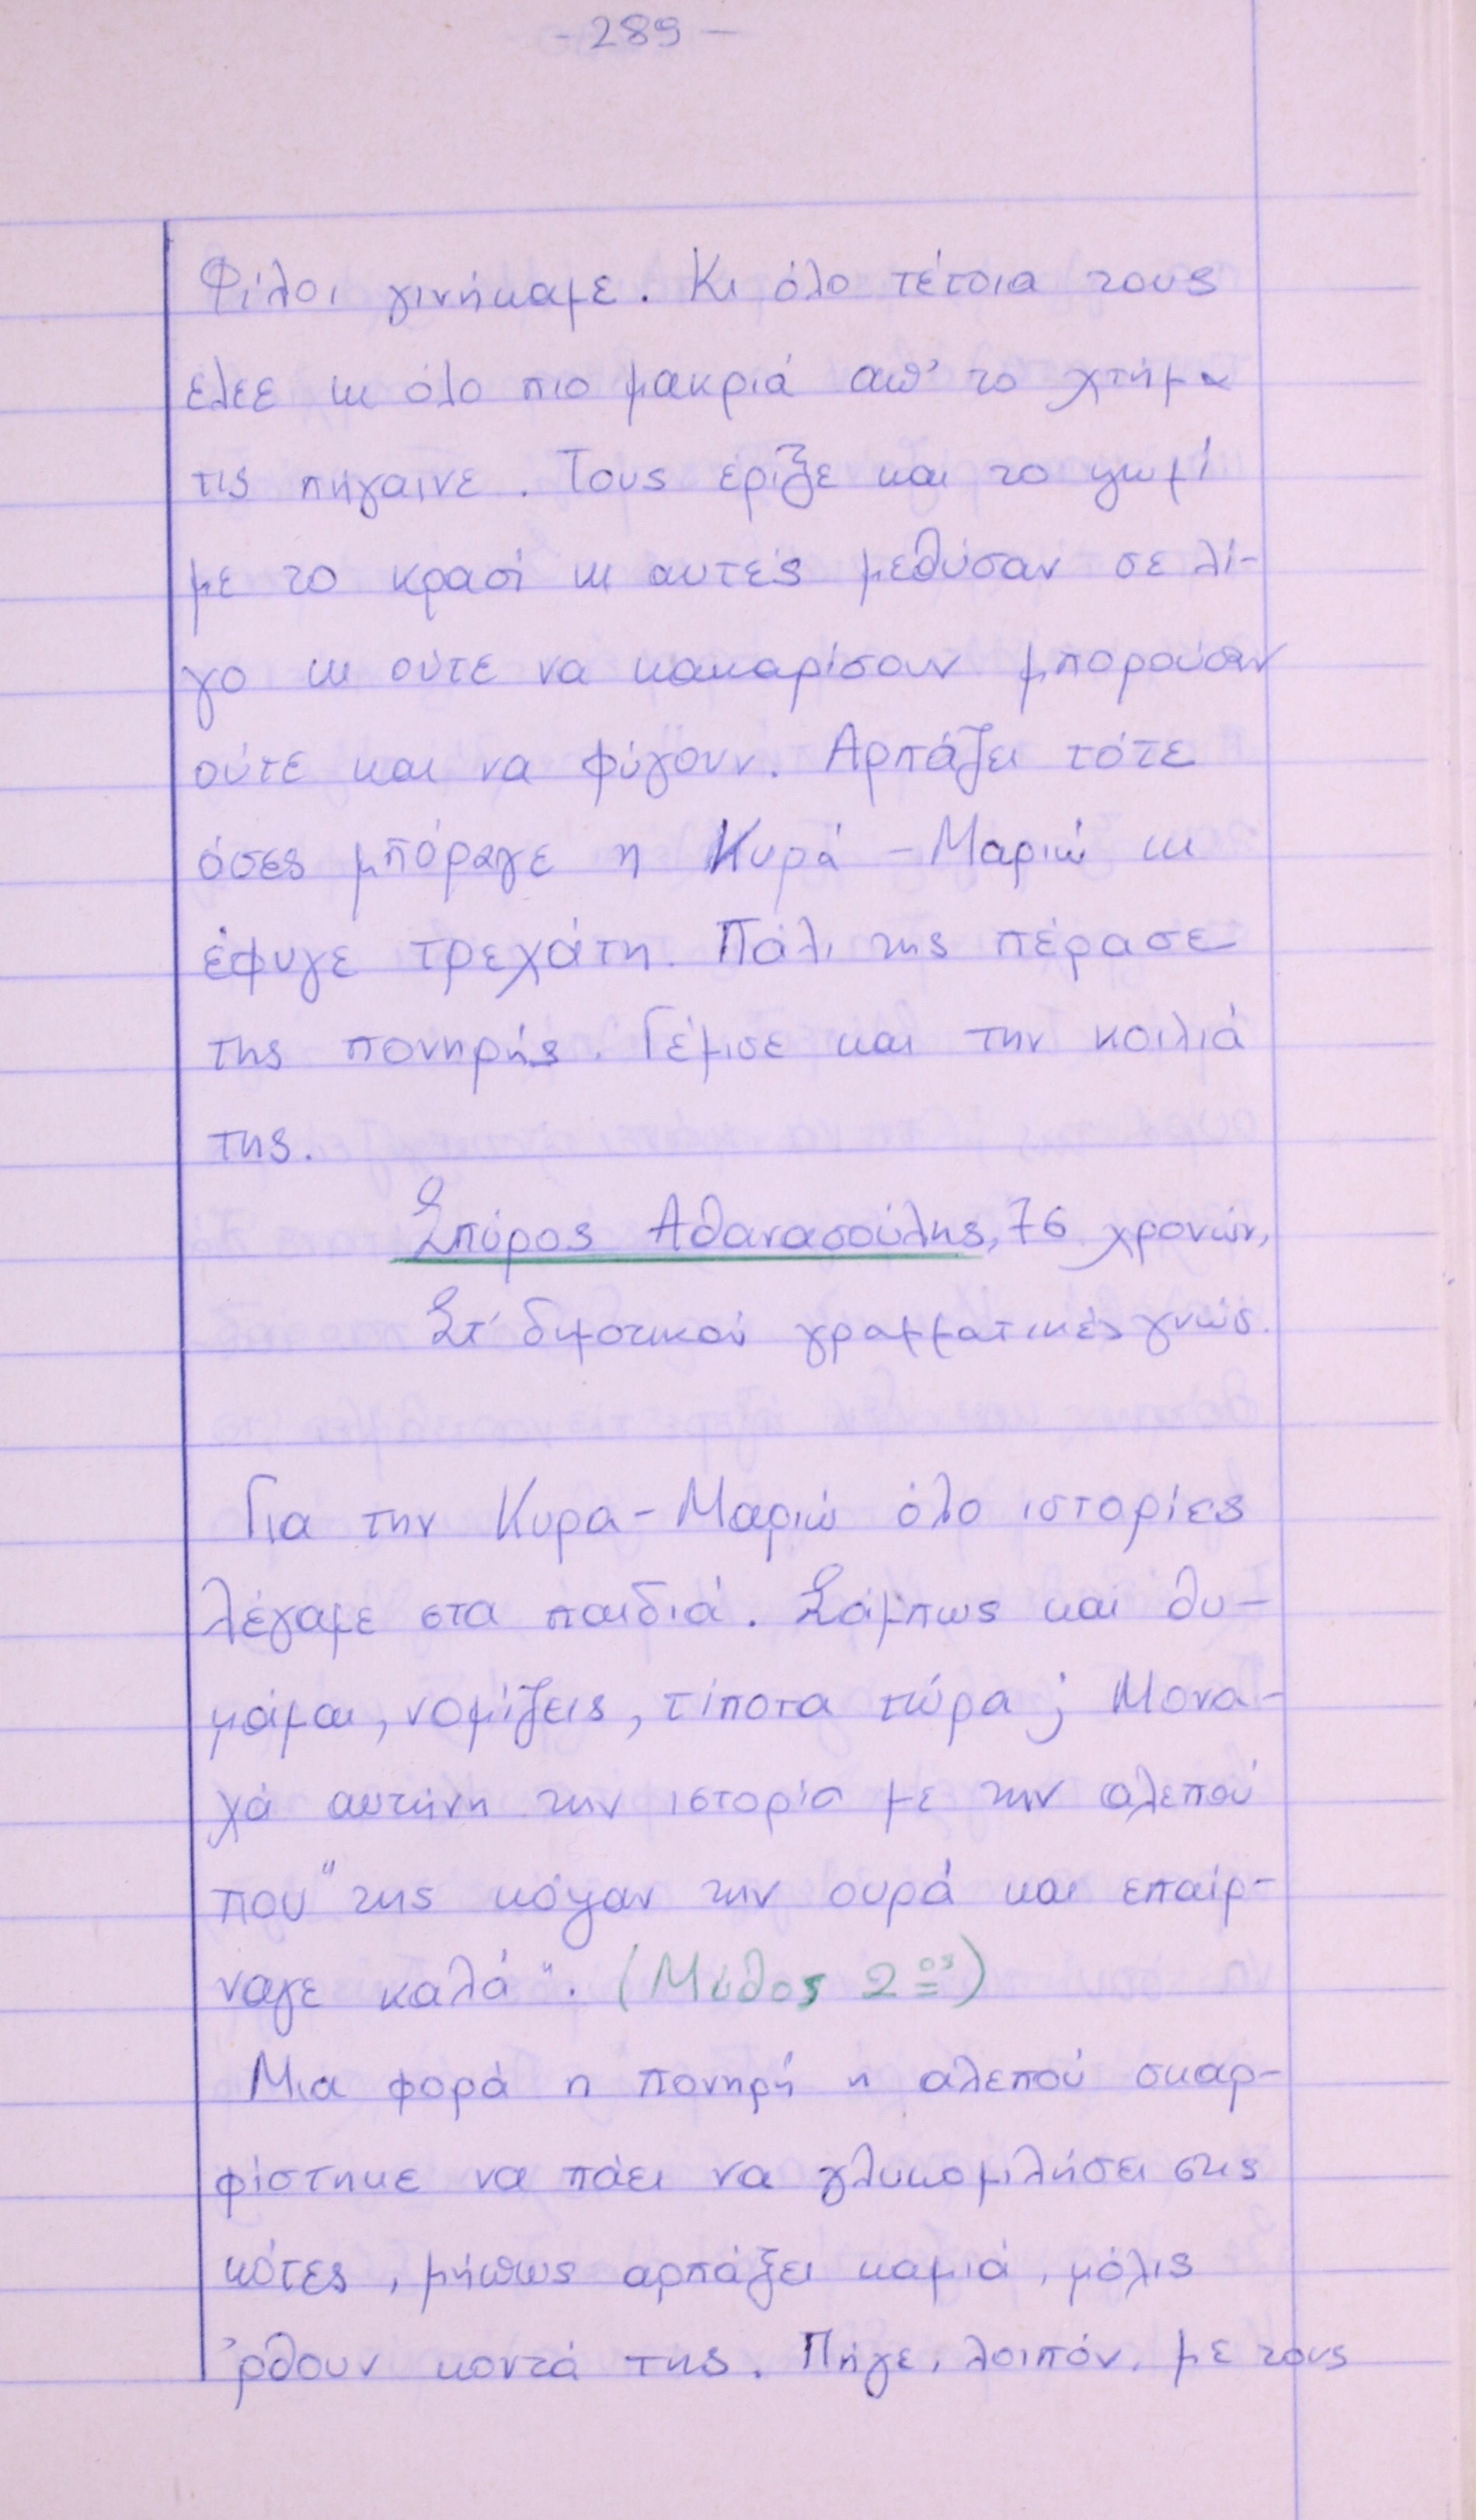 - 289 -
Φίλοι γινήκαμε. Κι όλο τέτοια τους
έλεε κι όλο πιο μακριά απ' το χτήμα
τις πήγαινε. Τους έριξε και το ψωμί
με το κρασί κι αυτές μεθύσαν σε λί-
γο κι ούτε να κακαρίσουν μπορούσαν
ούτε και να φύγουν. Αρπάζει τότε
όσες μπόραγε η Κυρά - Μαριώ κι
έφυγε τρεχάτη. Πάλι της πέρασε
της πονηρής. Γέμισε και την κοιλιά
της.
Σπύρος Αθανασούλης, 76 χρονών,
Στ' δημοτικού γραμματικές γνώς.
Για την Κυρα - Μαριώ όλο ιστορίες
λέγαμε στα παιδιά. Σάμπως και θυ-
μάμαι, νομίζεις, τίποτα τώρα; Μονα-
χά αυτήνη την ιστορία με την αλεπού
που "της κόψαν την ουρά και επαίρ-
ναγε καλά". (Μύθος 2ος)
Μια φορά η πονηρή η αλεπού σκαρ-
φίστηκε να πάει να γλυκομιλήσει στις
κότες, μήπως αρπάξει καμιά, μόλις
'ρθουν κοντά της. Πήγε, λοιπόν, με τους